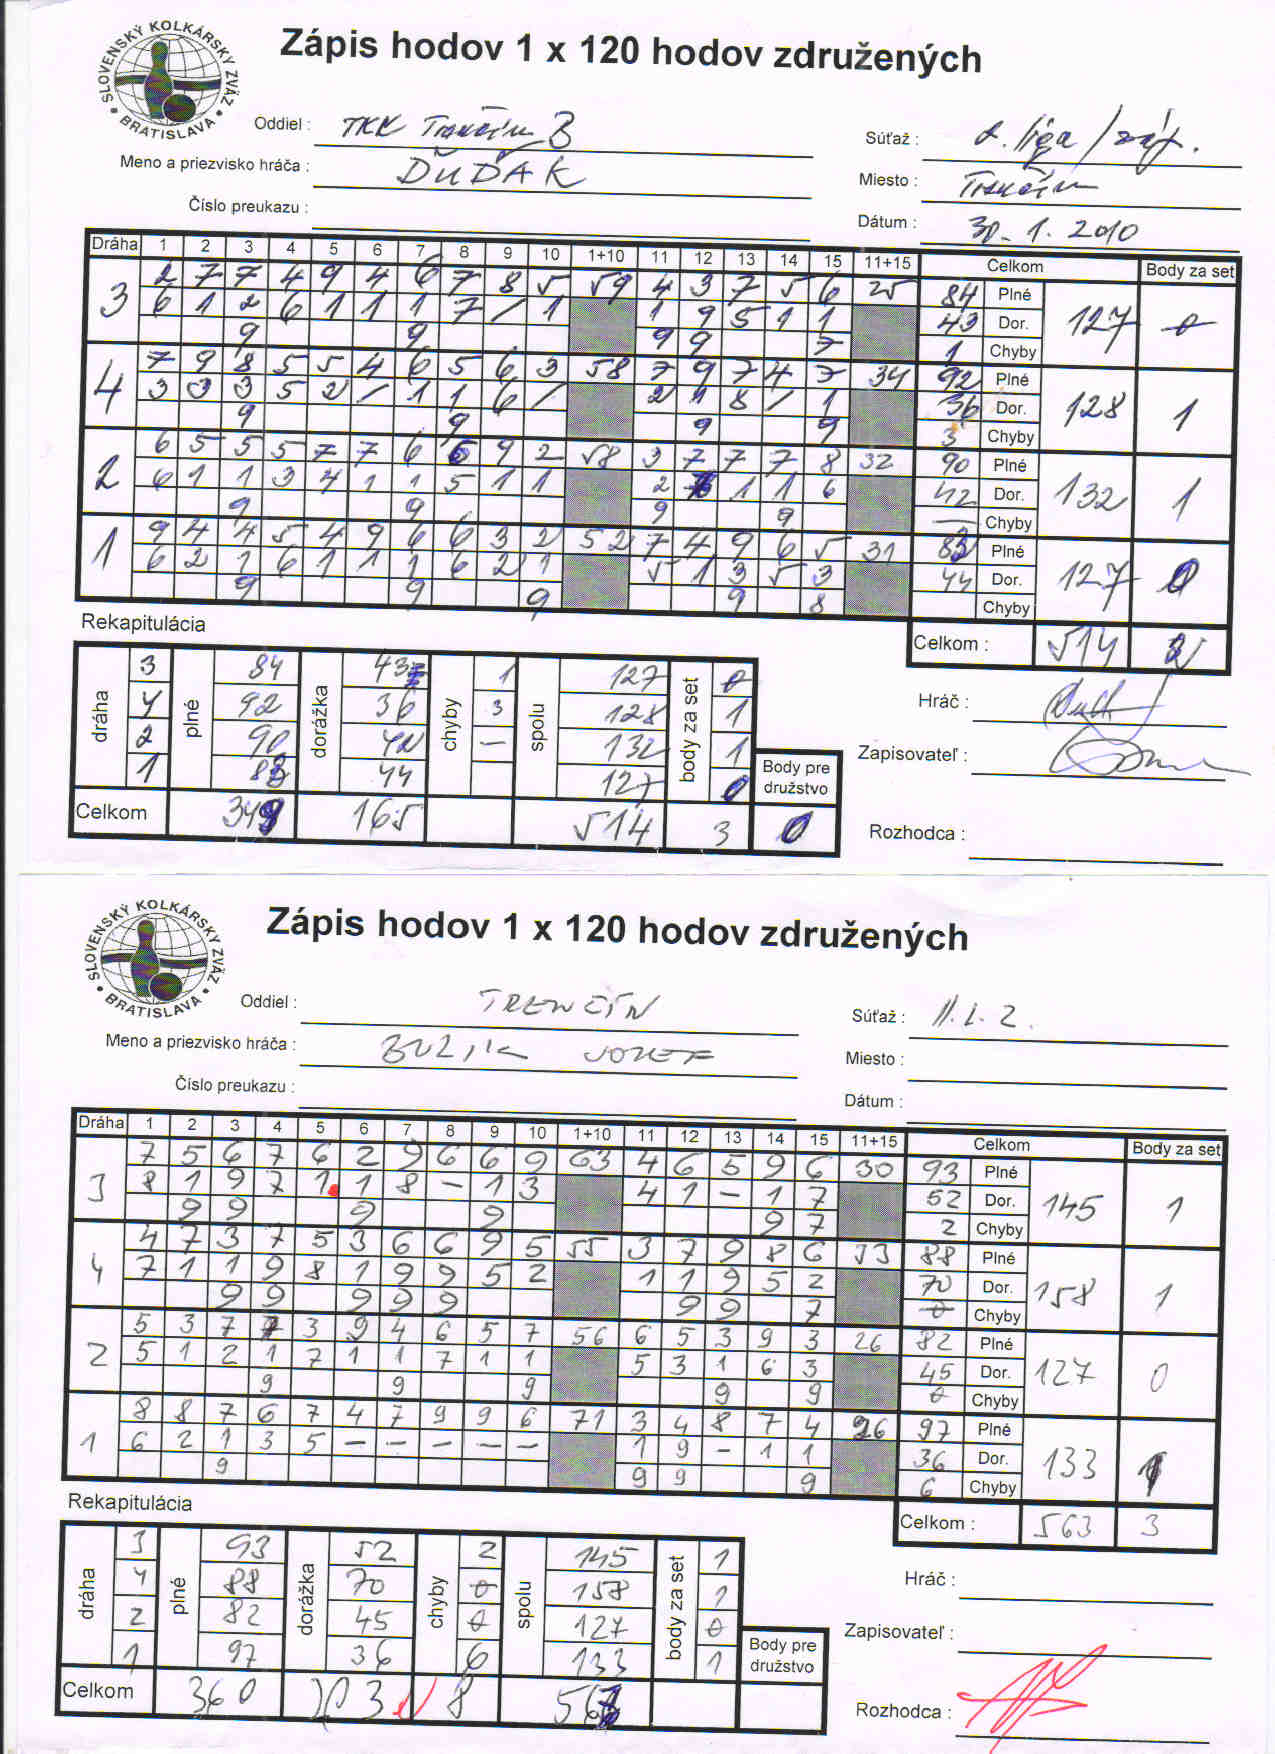 SLOVENSKÝ KOLKÁRSKY ZVÄZ
• BRATISLAVA •
Zápis hodov 1 x 120 hodov združených
Oddiel : TKK Trenčín B
Súťaž : 2. liga / záp.
Meno a priezvisko hráča : ĎUĎÁK
Miesto : Trenčín
Číslo preukazu :
Dátum : 30. 1. 2010
Dráha 1 2 3 4 5 6 7 8 9 10 1+10 11 12 13 14 15 11+15 Celkom Body za set
3 2 7 7 4 9 4 6 7 8 5 59 4 3 7 5 6 25 84 Plné 127 0
6 1 2 6 1 1 1 7 / 1 1 9 5 1 1 43 Dor.
9 9 9 9 7 1 Chyby
4 7 9 8 5 5 4 6 5 6 3 58 7 9 7 4 7 34 92 Plné 128 1
3 3 3 5 2 / 1 1 6 / 2 1 8 / 1 36 Dor.
9 9 9 9 3 Chyby
2 6 5 5 5 7 7 6 6 9 2 58 3 7 7 7 8 32 90 Plné 132 1
6 1 1 3 4 1 1 5 1 1 2 1 1 6 42 Dor.
9 9 9 9 — Chyby
1 9 4 4 5 4 9 6 6 3 2 52 7 4 9 6 5 31 83 Plné 127 0
6 2 1 6 1 1 1 6 2 1 5 1 3 5 3 44 Dor.
9 9 9 9 8 Chyby
Rekapitulácia
Celkom : 514 2
dráha plné dorážka chyby spolu body za set
3 84 43 1 127 0
4 92 36 3 128 1
2 90 42 — 132 1
1 83 44 127 0
Body pre družstvo
Celkom 349 165 514 3 0
Hráč :
Zapisovateľ :
Rozhodca :
SLOVENSKÝ KOLKÁRSKY ZVÄZ
• BRATISLAVA •
Zápis hodov 1 x 120 hodov združených
Oddiel : TRENČÍN
Súťaž : II. L. Z.
Meno a priezvisko hráča : JOZEF
Miesto :
Číslo preukazu :
Dátum :
Dráha 1 2 3 4 5 6 7 8 9 10 1+10 11 12 13 14 15 11+15 Celkom Body za set
3 7 5 6 7 6 2 9 6 6 9 63 4 6 5 9 6 30 93 Plné 145 1
8 1 9 7 1 1 8 — 1 3 4 1 — 1 7 52 Dor.
9 9 9 9 9 7 2 Chyby
4 4 7 3 7 5 3 6 6 9 5 55 3 7 9 8 6 33 88 Plné 158 1
7 1 1 9 8 1 9 9 5 2 1 1 9 5 2 70 Dor.
9 9 9 9 9 9 9 7 0 Chyby
2 5 3 7 7 3 9 4 6 5 7 56 6 5 3 9 3 26 82 Plné 127 0
5 1 2 1 7 1 1 7 1 1 5 3 1 6 3 45 Dor.
9 9 9 9 9 0 Chyby
1 8 8 7 6 7 4 7 9 9 6 71 3 4 8 7 4 26 97 Plné 133 1
6 2 1 3 5 — — — — — 1 9 — 1 1 36 Dor.
9 9 9 9 6 Chyby
Rekapitulácia
Celkom : 563 3
dráha plné dorážka chyby spolu body za set
3 93 52 2 145 1
4 88 70 0 158 1
2 82 45 0 127 0
1 97 36 6 133 1
Body pre družstvo
Celkom 360 203 8 563
Hráč :
Zapisovateľ :
Rozhodca :